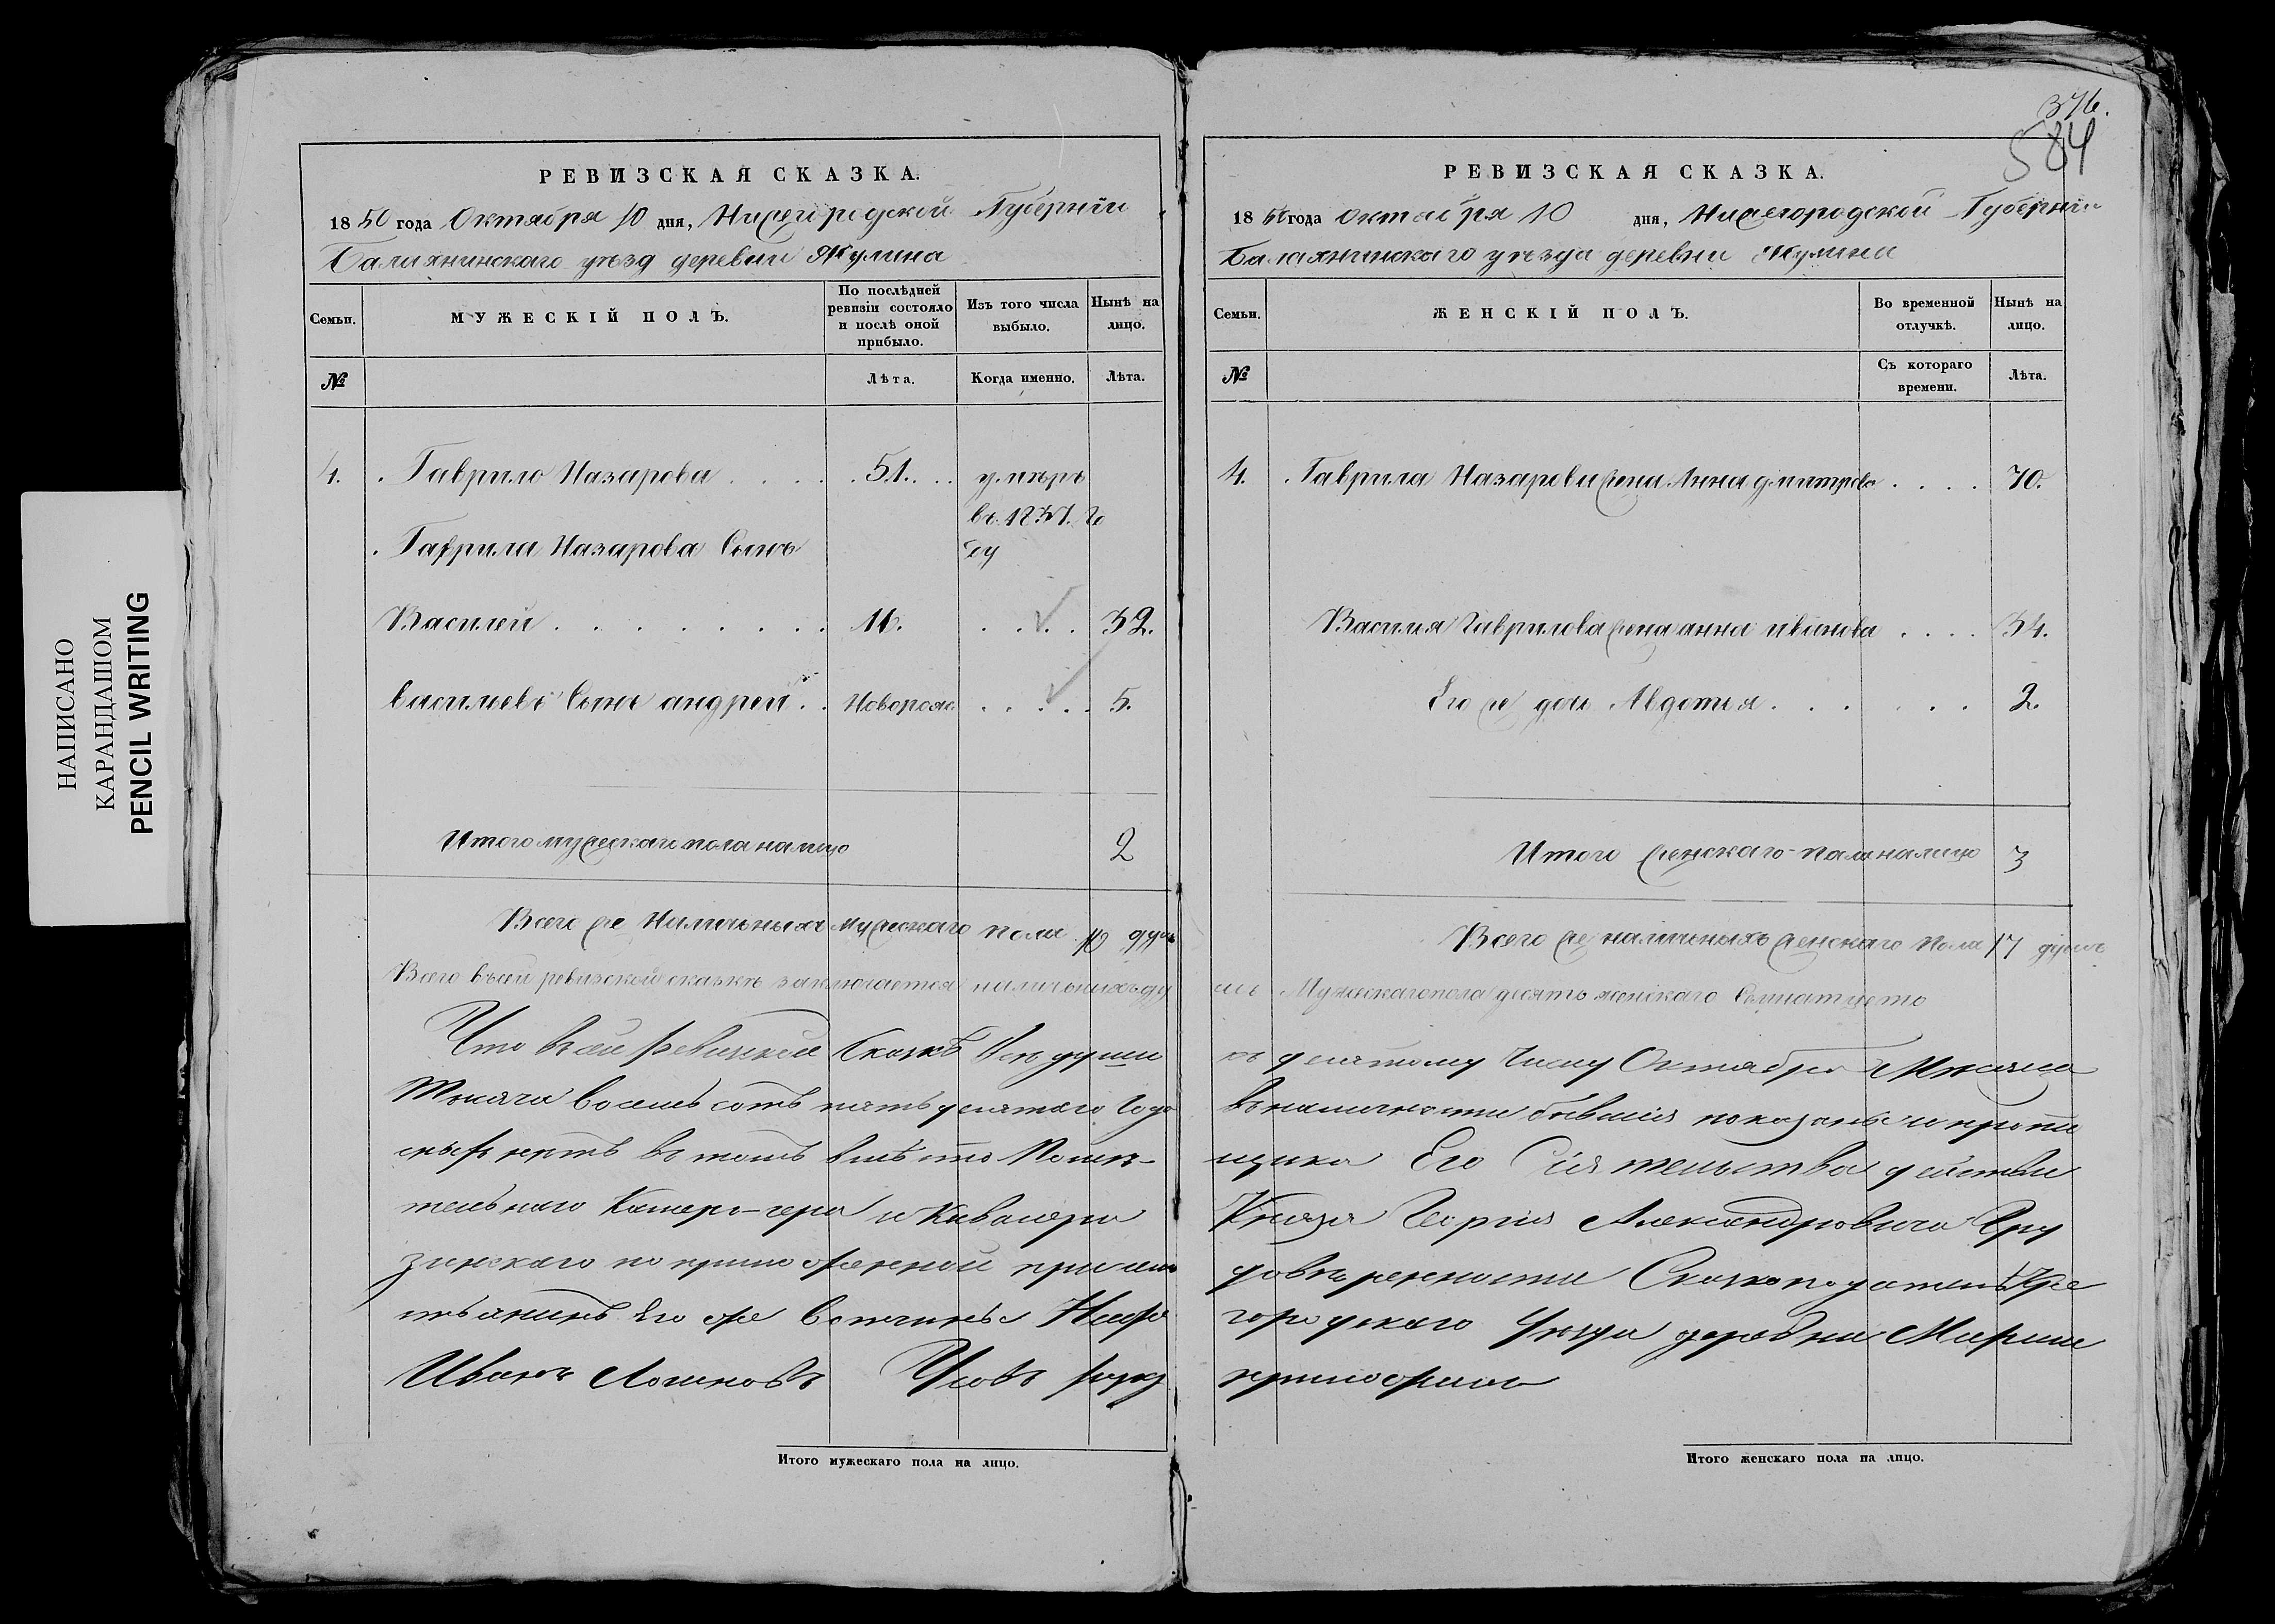 НАПИСАНО
КАРАНДАШОМ
PENCIL WRITING
РЕВИЗСКАЯ СКАЗКА.
1850 года Октября 10 дня, Нижегородской Губернии
Балахнинскаго уезд деревни Жулина
Семьи.
МУЖЕСКІЙ ПОЛЪ.
По послѣдней ревизіи состояло и послѣ оной прибыло.
Изъ того числа выбыло.
Нынѣ на лицо.
№
Лѣта.
Когда именно.
Лѣта.
4. Гаврило Назарова 51. умѣръ
въ 18 го
Гаврила Назарова Сынъ ду
Василей 16. 32.
васильевъ Сынъ андрей Новорож 5.
Итого мужескаго пола на лицо 2
Всего же Наличныхъ мужескаго пола 10 душъ
Всего в сей ревизской сказкѣ заключается наличныхъ ду
Что в сей Ревизской Сказкѣ все души
Тысяча восемь сотъ пятьдесятаго Года
скыхъ нѣтъ въ томъ вмѣсто Помѣ-
тельнаго Камеръ-гера и Кавалера
зинскаго по приложенной при сем
стьянинъ Его же Вотчины Ниже
Иванъ Логиновъ Усовъ руку
Итого мужескаго пола на лицо.
376.
584
РЕВИЗСКАЯ СКАЗКА.
1850 года октября 10 дня, Нижегородской Губернии
Балахнинскаго уезда деревни Жулина
Семьи.
ЖЕНСКІЙ ПОЛЪ.
Во временной отлучкѣ.
Нынѣ на лицо.
№
Съ котораго времени.
Лѣта.
4. Гаврила Назарова жена Анна дмитрева 70.
Василия Гаврилова жена анна иванова 34.
Его же дочь Авдотья 2.
Итого женскаго пола на лицо 3
Всего же наличныхъ женскаго пола 17 душъ
шь Мужескаго пола десять женскаго Семнатцеть
къ десятому Числу Октября Месяца
в наличности бывшия показаны и пропи
щика Его Сиятельства действи
Князя Георгия Александровича Гру
доверенности Сказкоподатель Кре
городскаго Уезда деревни
приложил
Итого женскаго пола на лицо.